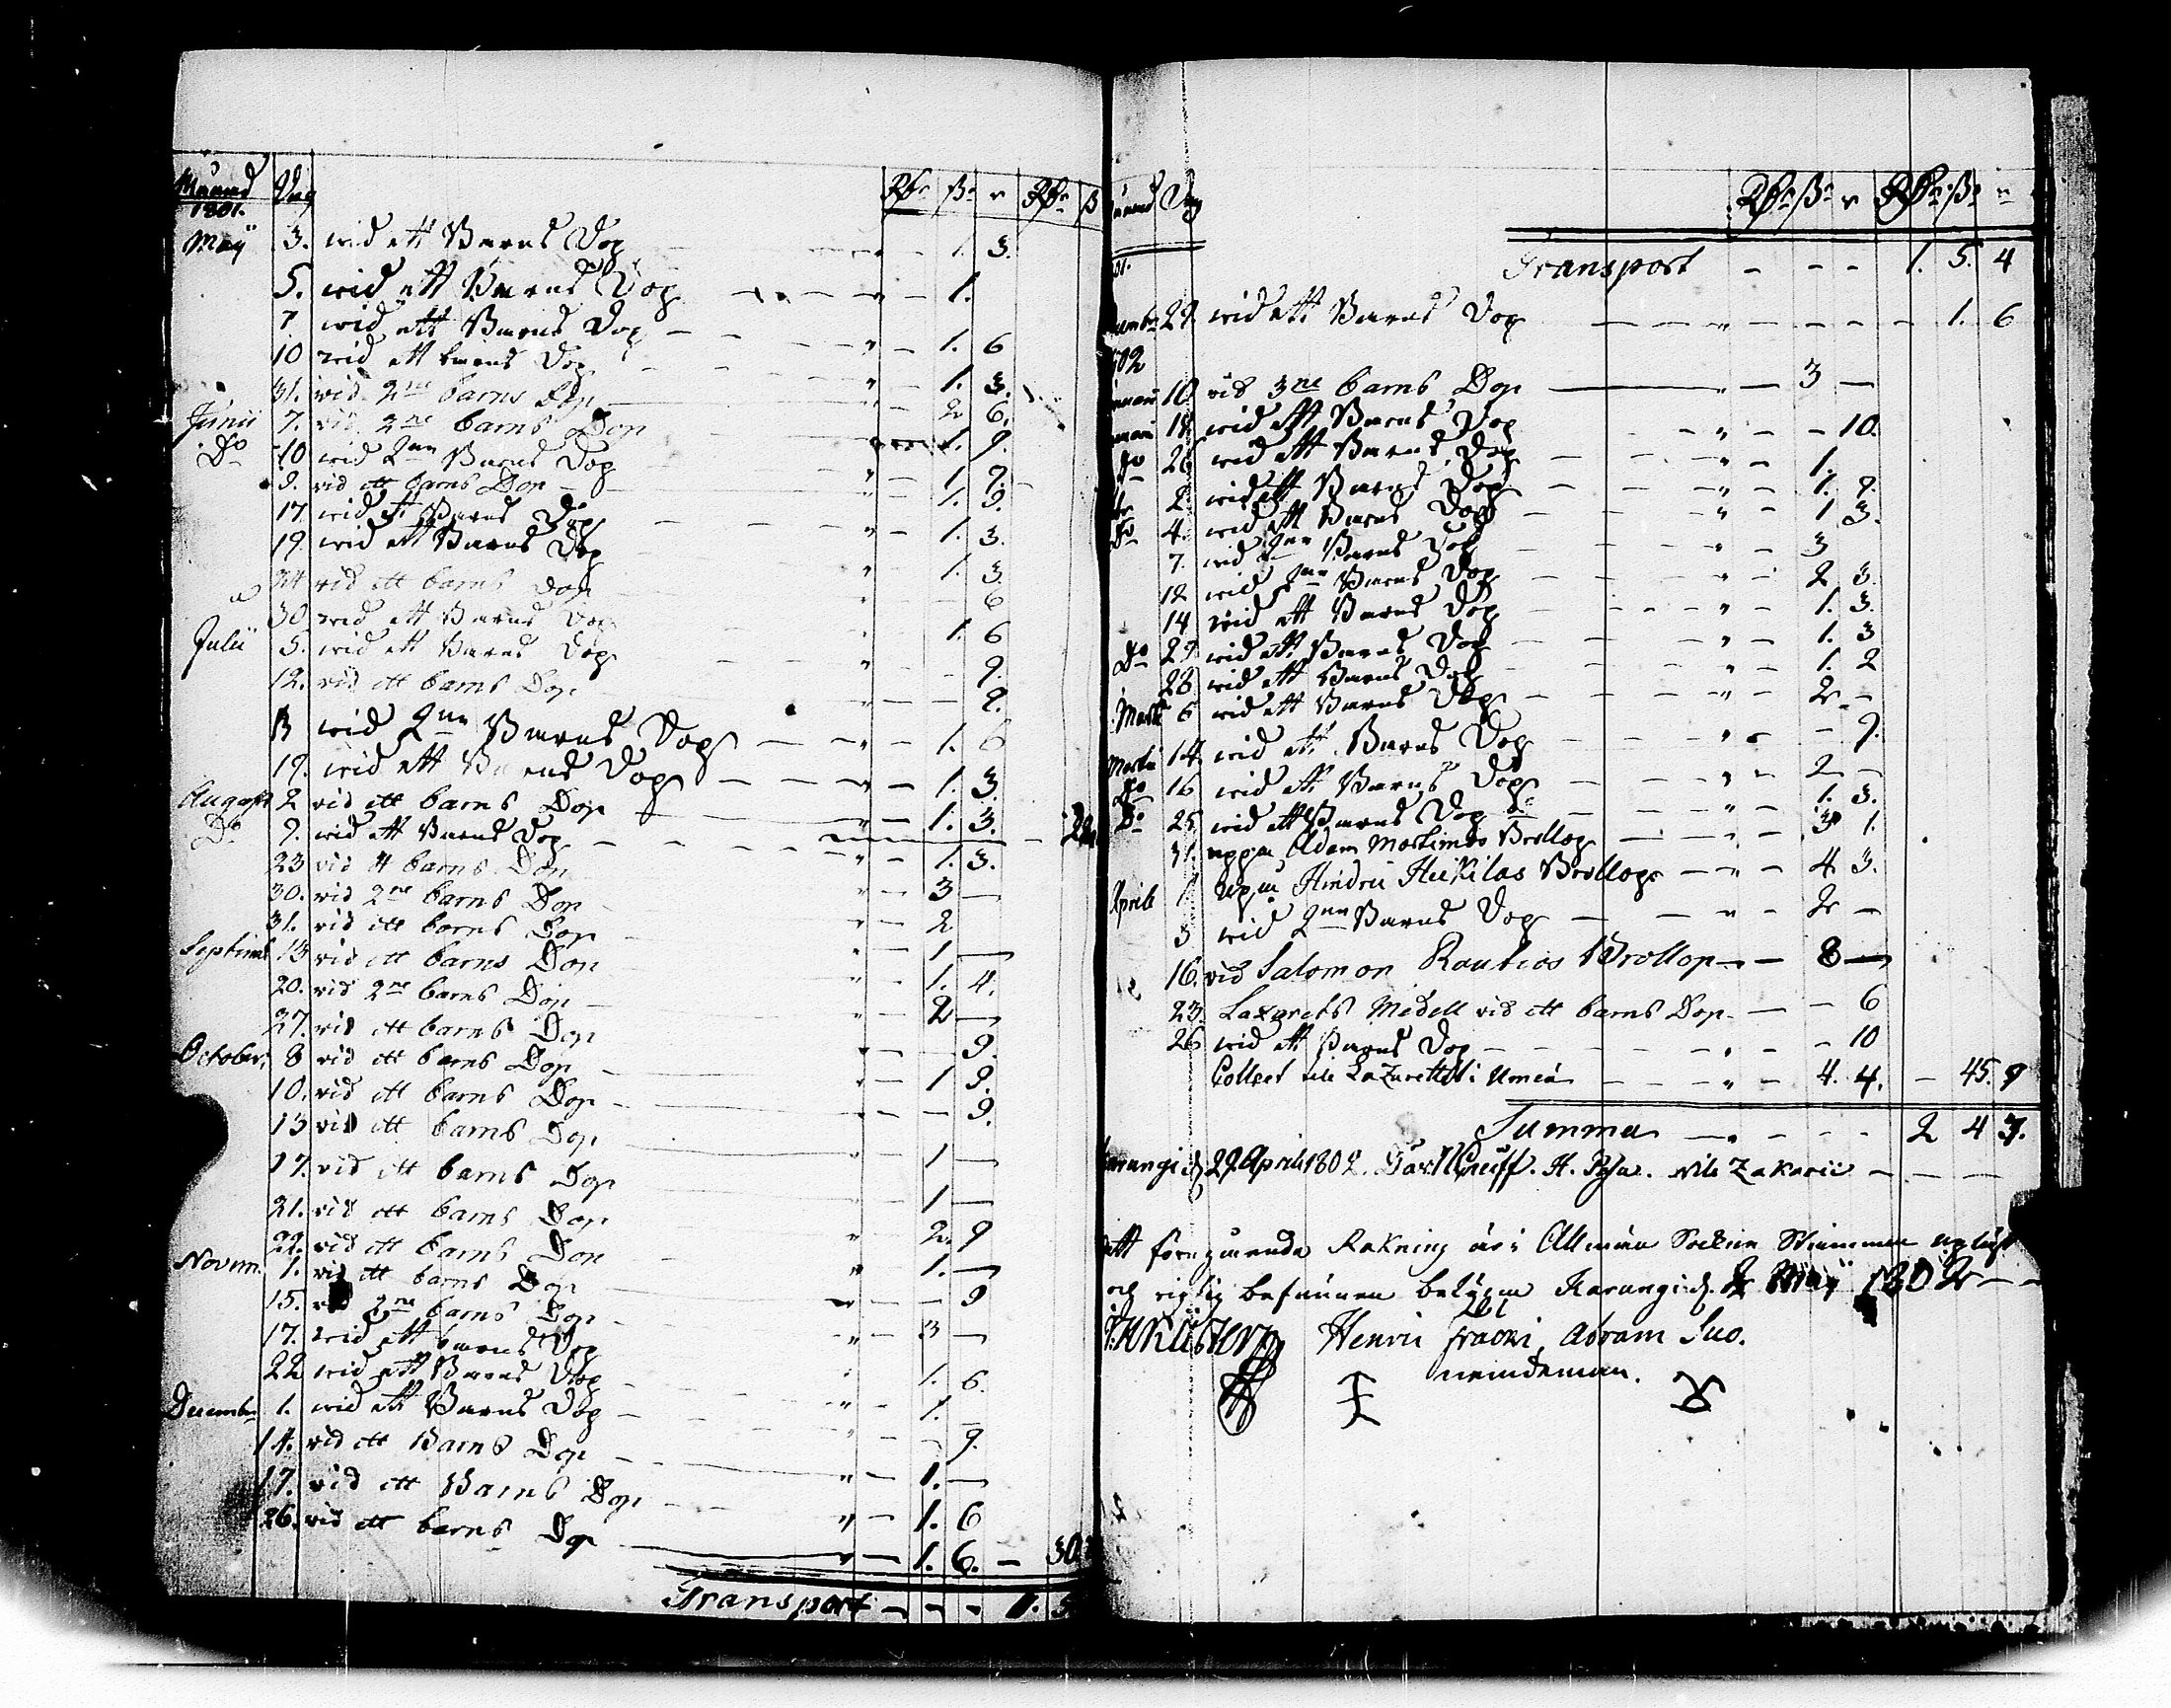 Månad Dag Rdr ß r Rdr ß
1801.
Maij 3. wid ett Barns Dop 1. 3.
5. wid ett Barns Dop 1.
7 wid ett Barns Dop 1. 6
10 wid ett barns Dop 1. 3.
31. vid 2ne barns Dop 2 6.
Junii 7. vid 2ne barns Dop 1. 9.
Do 10 wid 2ne Barns Dop 1 9.
9. vid ett barns Dop 1. 9.
17 wid ett Barns Dop 1. 3.
19. wid ett Barns Dop 1. 3.
24 vid ett barns Dop 6
30 wid ett Barns Dop 1. 6
Julii 5. wid ett Barns Dop 9.
12. vid ett barns Dop 9.
13 wid 2ne Barns Dop 1. 6
19. wid ett Barns Dop 1. 3.
August 2 vid ett barns Dop 1. 3.
Do 9. wid ett Barns Dop
23 vid ett barns Dop 1. 3.
30. vid 2ne barns Dop 3 —
31. vid ett barns Dop 2
Septemb 13 vid ett barns Dop 1 —
20. vid 2ne barns Dop 1. 4.
27. vid ett barns Dop 2 —
October 8 vid ett barns Dop 9.
10. vid ett barns Dop 1 9.
13 vid ett barns Dop 9.
17. vid ett barns Dop 1 —
21. vid ett barns Dop 1 —
22. vid ett barns Dop 2. 9
Novem. 1. vid ett barns Dop 1. —
15. vid 2ne barns Dop 9
17. wid ett barns Dop 3 —
22 wid ett Barns Dop 1. 6.
Decembr 1. wid ett Barns Dop 1. —
14. vid ett Barns Dop 9.
17. vid ett Barns Dop 1. —
26. vid ett barns Dop 1. 6
1. 6. — 30.
Transport 1. 5
Dag Rdr ß r Rdr ß r
Transport 1. 5. 4
29. wid ett Barns Dop 1. 6
10 vid 3ne barns Dop 3 —
18. wid ett Barns Dop 10.
Do 26 wid ett Barns Dop 1.
2. wid ett Barns Dop 1. 9.
Do 4. wid ett Barns Dop 1 3.
7. wid 2ne Barns Dop 3
12 wid 2ne Barns Dop 2 3.
14 wid ett Barns Dop 1. 3.
Do 27 wid ett Barns Dop 1. 3
28 wid ett Barns Dop 1. 2
Marti 6 wid ett Barns Dop 2 —
Martii 14 wid ett Barns Dop 9.
Do 16 wid ett Barns Dop 2 —
Do 25 wid ett Barns Dop 1. 3.
31. uppå Adam Martimos Bröllop 3 1.
Aprill 1 Uppå Hindric Heikilas Bröllop 4 3.
3 wid 2ne Barns Dop 2 —
16. vid Salomon Rautios Bröllop 8 —
23. Lazarets Medell vid ett barns Dop 6
26 wid ett Barns Dop 10
Collect till Lazarettet i Umeå 4. 4. — 45. 9
Summa 2 4 7.
29 April 1802. Nils Zakarii
att föregående Räkning är i Allmän Sockne Stämman uplyst
och rigtig befunnen betygom Karungi d. 2 Maij 1802
Henric Abram Suo.
nämndeman.